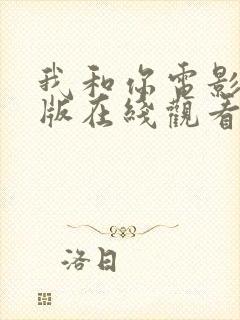 我和你电影
版在线觀看
洛日